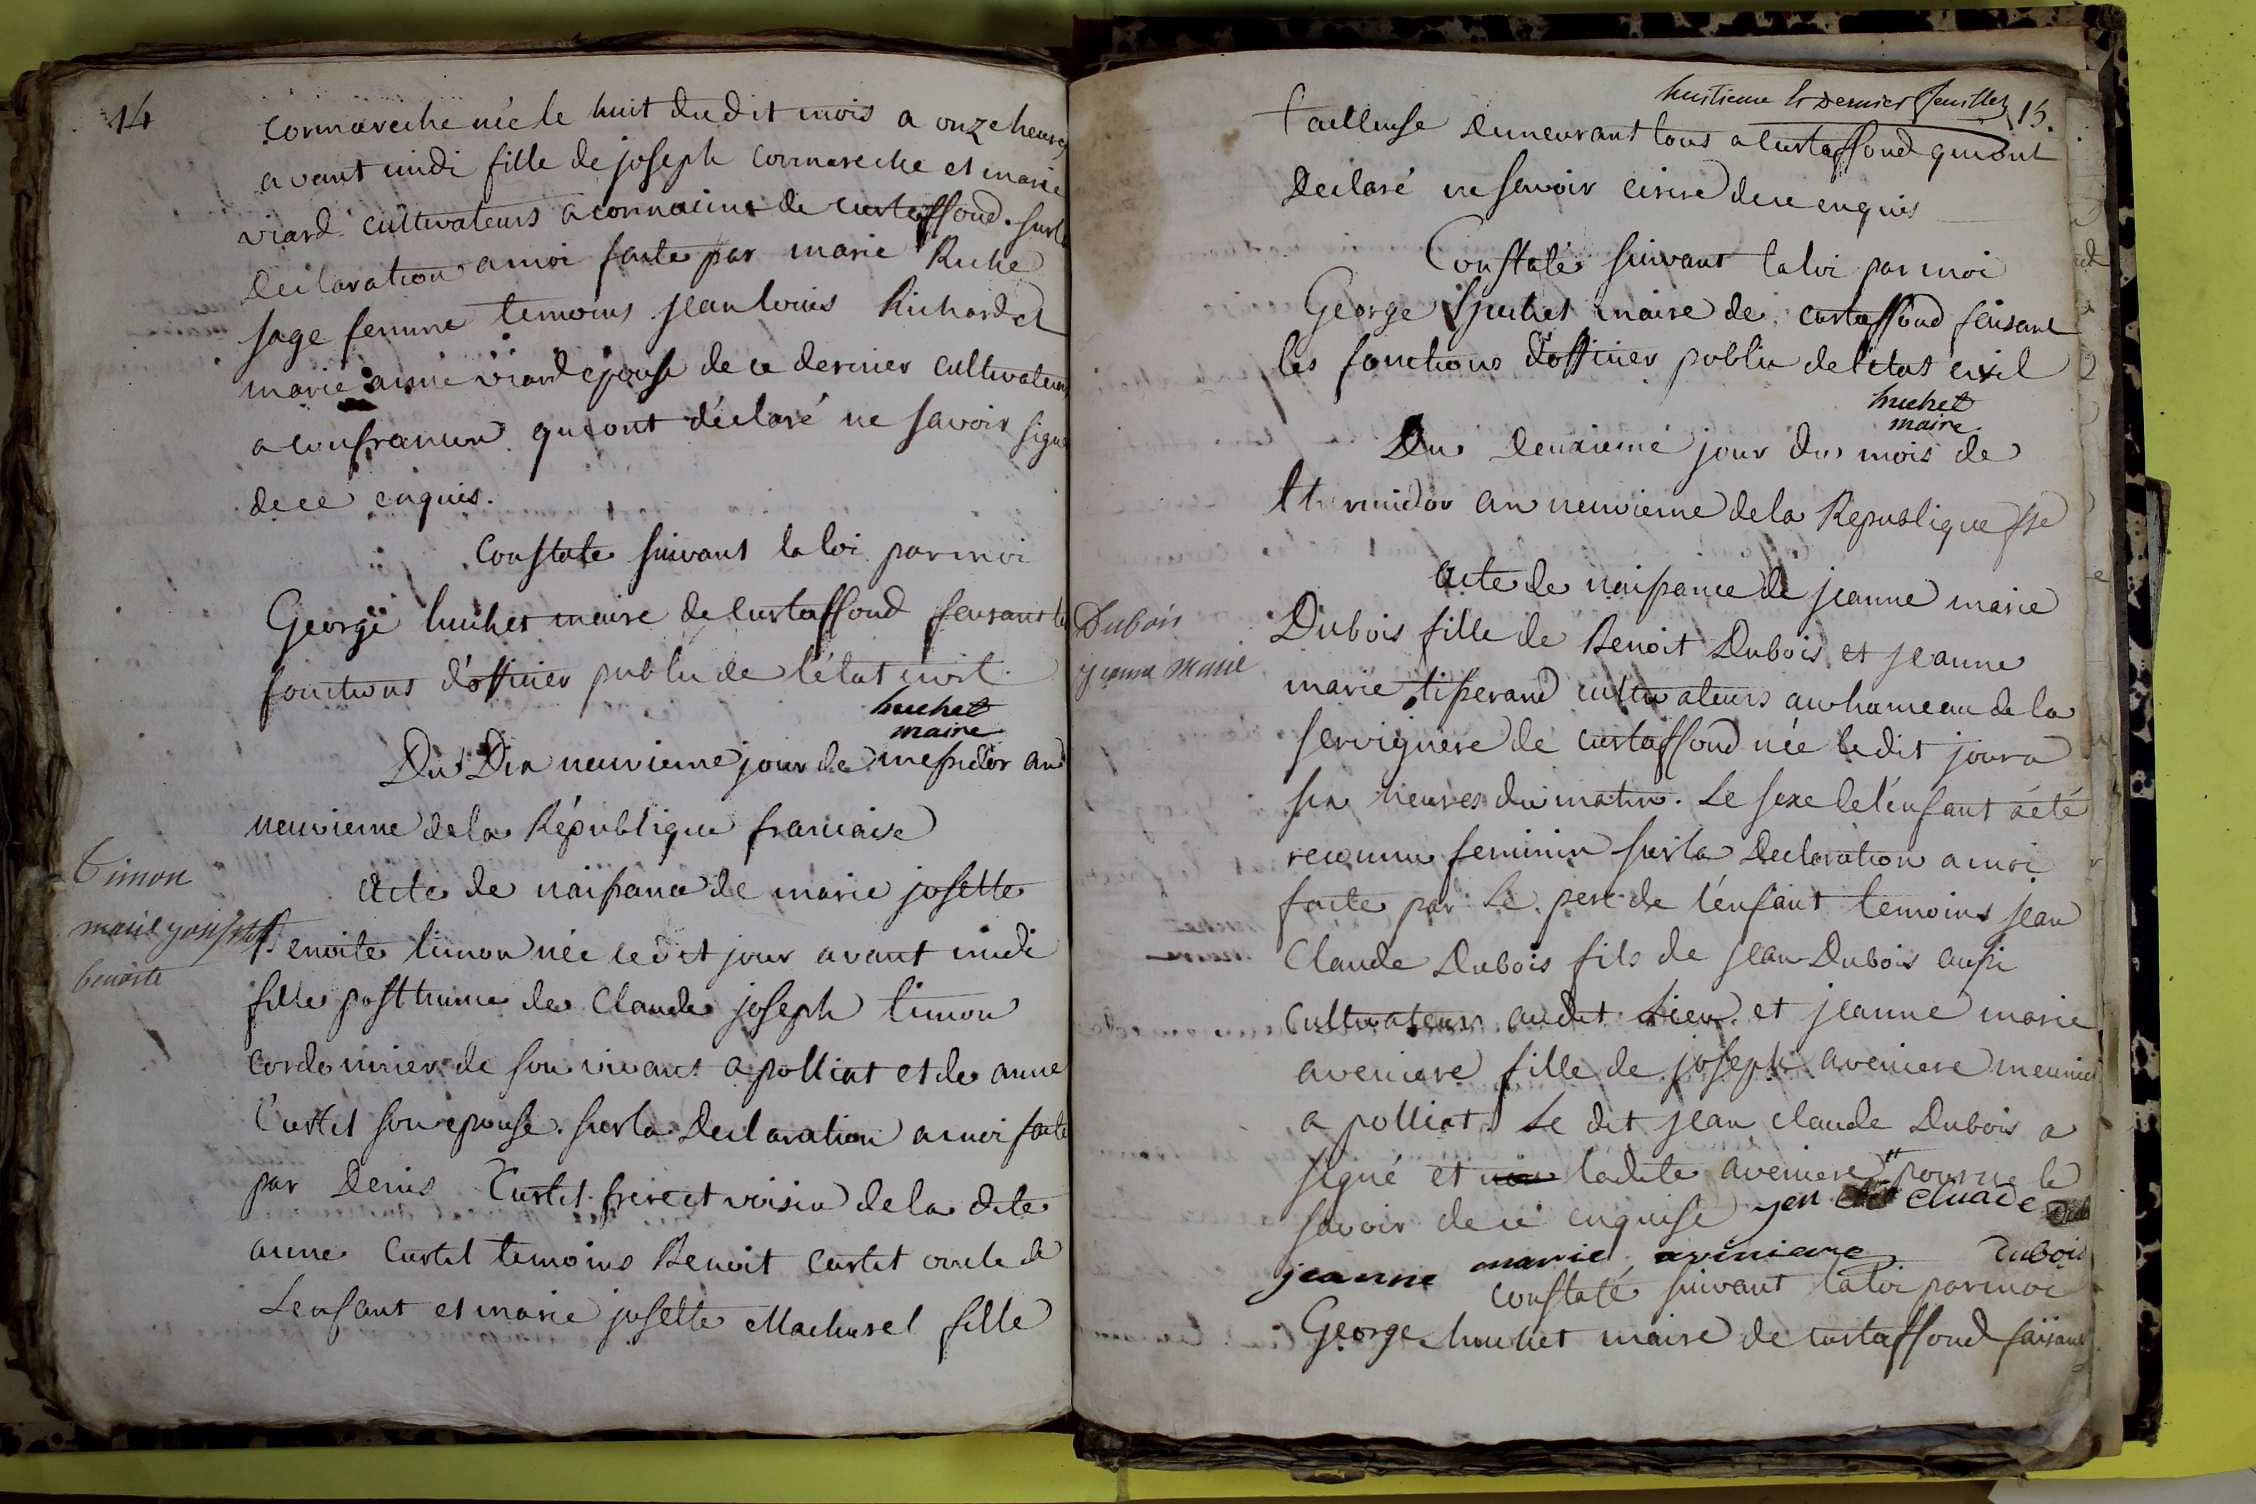 14
Cormareche née le huit dudit mois a onze heures
avant midi fille de joseph cormareche et marie
viard cultivateurs a cormacine de curtaffond. sur la
declaration a moi faite par marie Ruche
sage femme temoins jean louis Richard et
marie anne viard epouse de ce dernier cultivateurs
a confrancon qui ont déclaré ne savoir signer
de ce enquis.
Constate suivant la loi par moi
George huchet maire de curtaffond faisant les
fonctions d'officier public de l'état civil.
huchet
maire
Du Dix neuvieme jour de messidor an
neuvieme de la République francaise
Timon
marie josephte
benoite
Acte de naissance de marie josette
Benoite timon née ledit jour avant midi
fille posthume de Claude joseph timon
cordonnier de son vivant a polliat et de anne
Curtet son epouse. sur la Declaration a moi faite
par Denis Curtet frere et voisin de la dite
anne Curtet temoins Benoit Curtet oncle de
L'enfant et marie josette Machurel fille
huitieme et dernier feuillet 15.
tailleuse demeurant tous a curtaffond qui ont
Declaré ne savoir ecrire de ce enquis
Constaté suivant la loi par moi
George huchet maire de curtaffond faisant
les fonctions d'officier public de l'état civil
huchet
maire
Du Deuxieme jour du mois de
thermidor an neuvieme de la Republique fse
Dubois
jeanne Marie
Acte de naissance de jeanne marie
Dubois fille de Benoit Dubois et jeanne
marie tisserand cultivateurs au hameau de la
servignere de curtaffond née le dit jour a
six heures du matin. Le sexe de l'enfant a été
reconnu feminin sur la Declaration a moi
faite par Le pere de l'enfant temoins jean
Claude Dubois fils de jean Dubois aussi
Cultivateur audit Lieu et jeanne marie
aveniere fille de joseph aveniere meunier
a polliat. Le dit jean claude Dubois a
signé et non ladite aveniere pour ne le
savoir de ce enquise jen cluade
jeanne marie aviniere Dubois
Constaté suivant la loi par moi
George huchet maire de curtaffond faisant